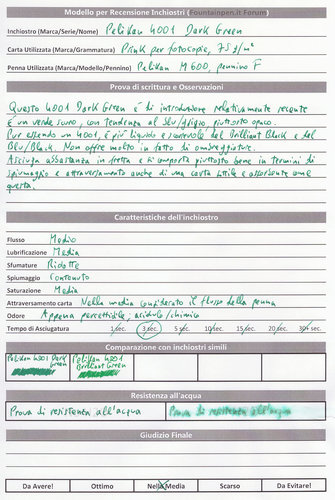 Modello per Recensione Inchiostri (Fountainpen.it Forum)
Inchiostro (Marca/Serie/Nome) Pelikan 4001 Dark Green
Carta Utilizzata (Marca/Grammatura) Pink per fotocopie, 75 g/m²
Penna Utilizzata (Marca/Modello/Pennino) Pelikan M600, pennino F
Prova di scrittura e Osservazioni
Questo 4001 Dark Green è di introduzione relativamente recente
È un verde scuro, con tendenza al blu/grigio, piuttosto opaco.
Pur essendo un 4001, è più liquido e scorrevole del Brilliant Black e del
Blu/Black. Non offre molto in fatto di ombreggiature.
Asciuga abbastanza in fretta e si comporta piuttosto bene in termini di
spiumaggio e attraversamento anche di una carta sottile e assorbente come
questa.
Caratteristiche dell'inchiostro
Flusso Medio
Lubrificazione Media
Sfumature Ridotte
Spiumaggio Contenuto
Saturazione Media
Attraversamento carta Nella media considerato il flusso della penna
Odore Appena percettibile, acidulo/chimico
Tempo di Asciugatura 1 sec. 3 sec. 5 sec. 10 sec. 15 sec. 20 sec. 30+ sec.
Comparazione con inchiostri simili
Pelikan 4001 Dark Green
Pelikan 4001 Brilliant Green
Resistenza all'acqua
Prova di resistenza all'acqua Prova di resistenza all'acqua
Giudizio Finale
Da Avere! Ottimo Nella Media Scarso Da Evitare!